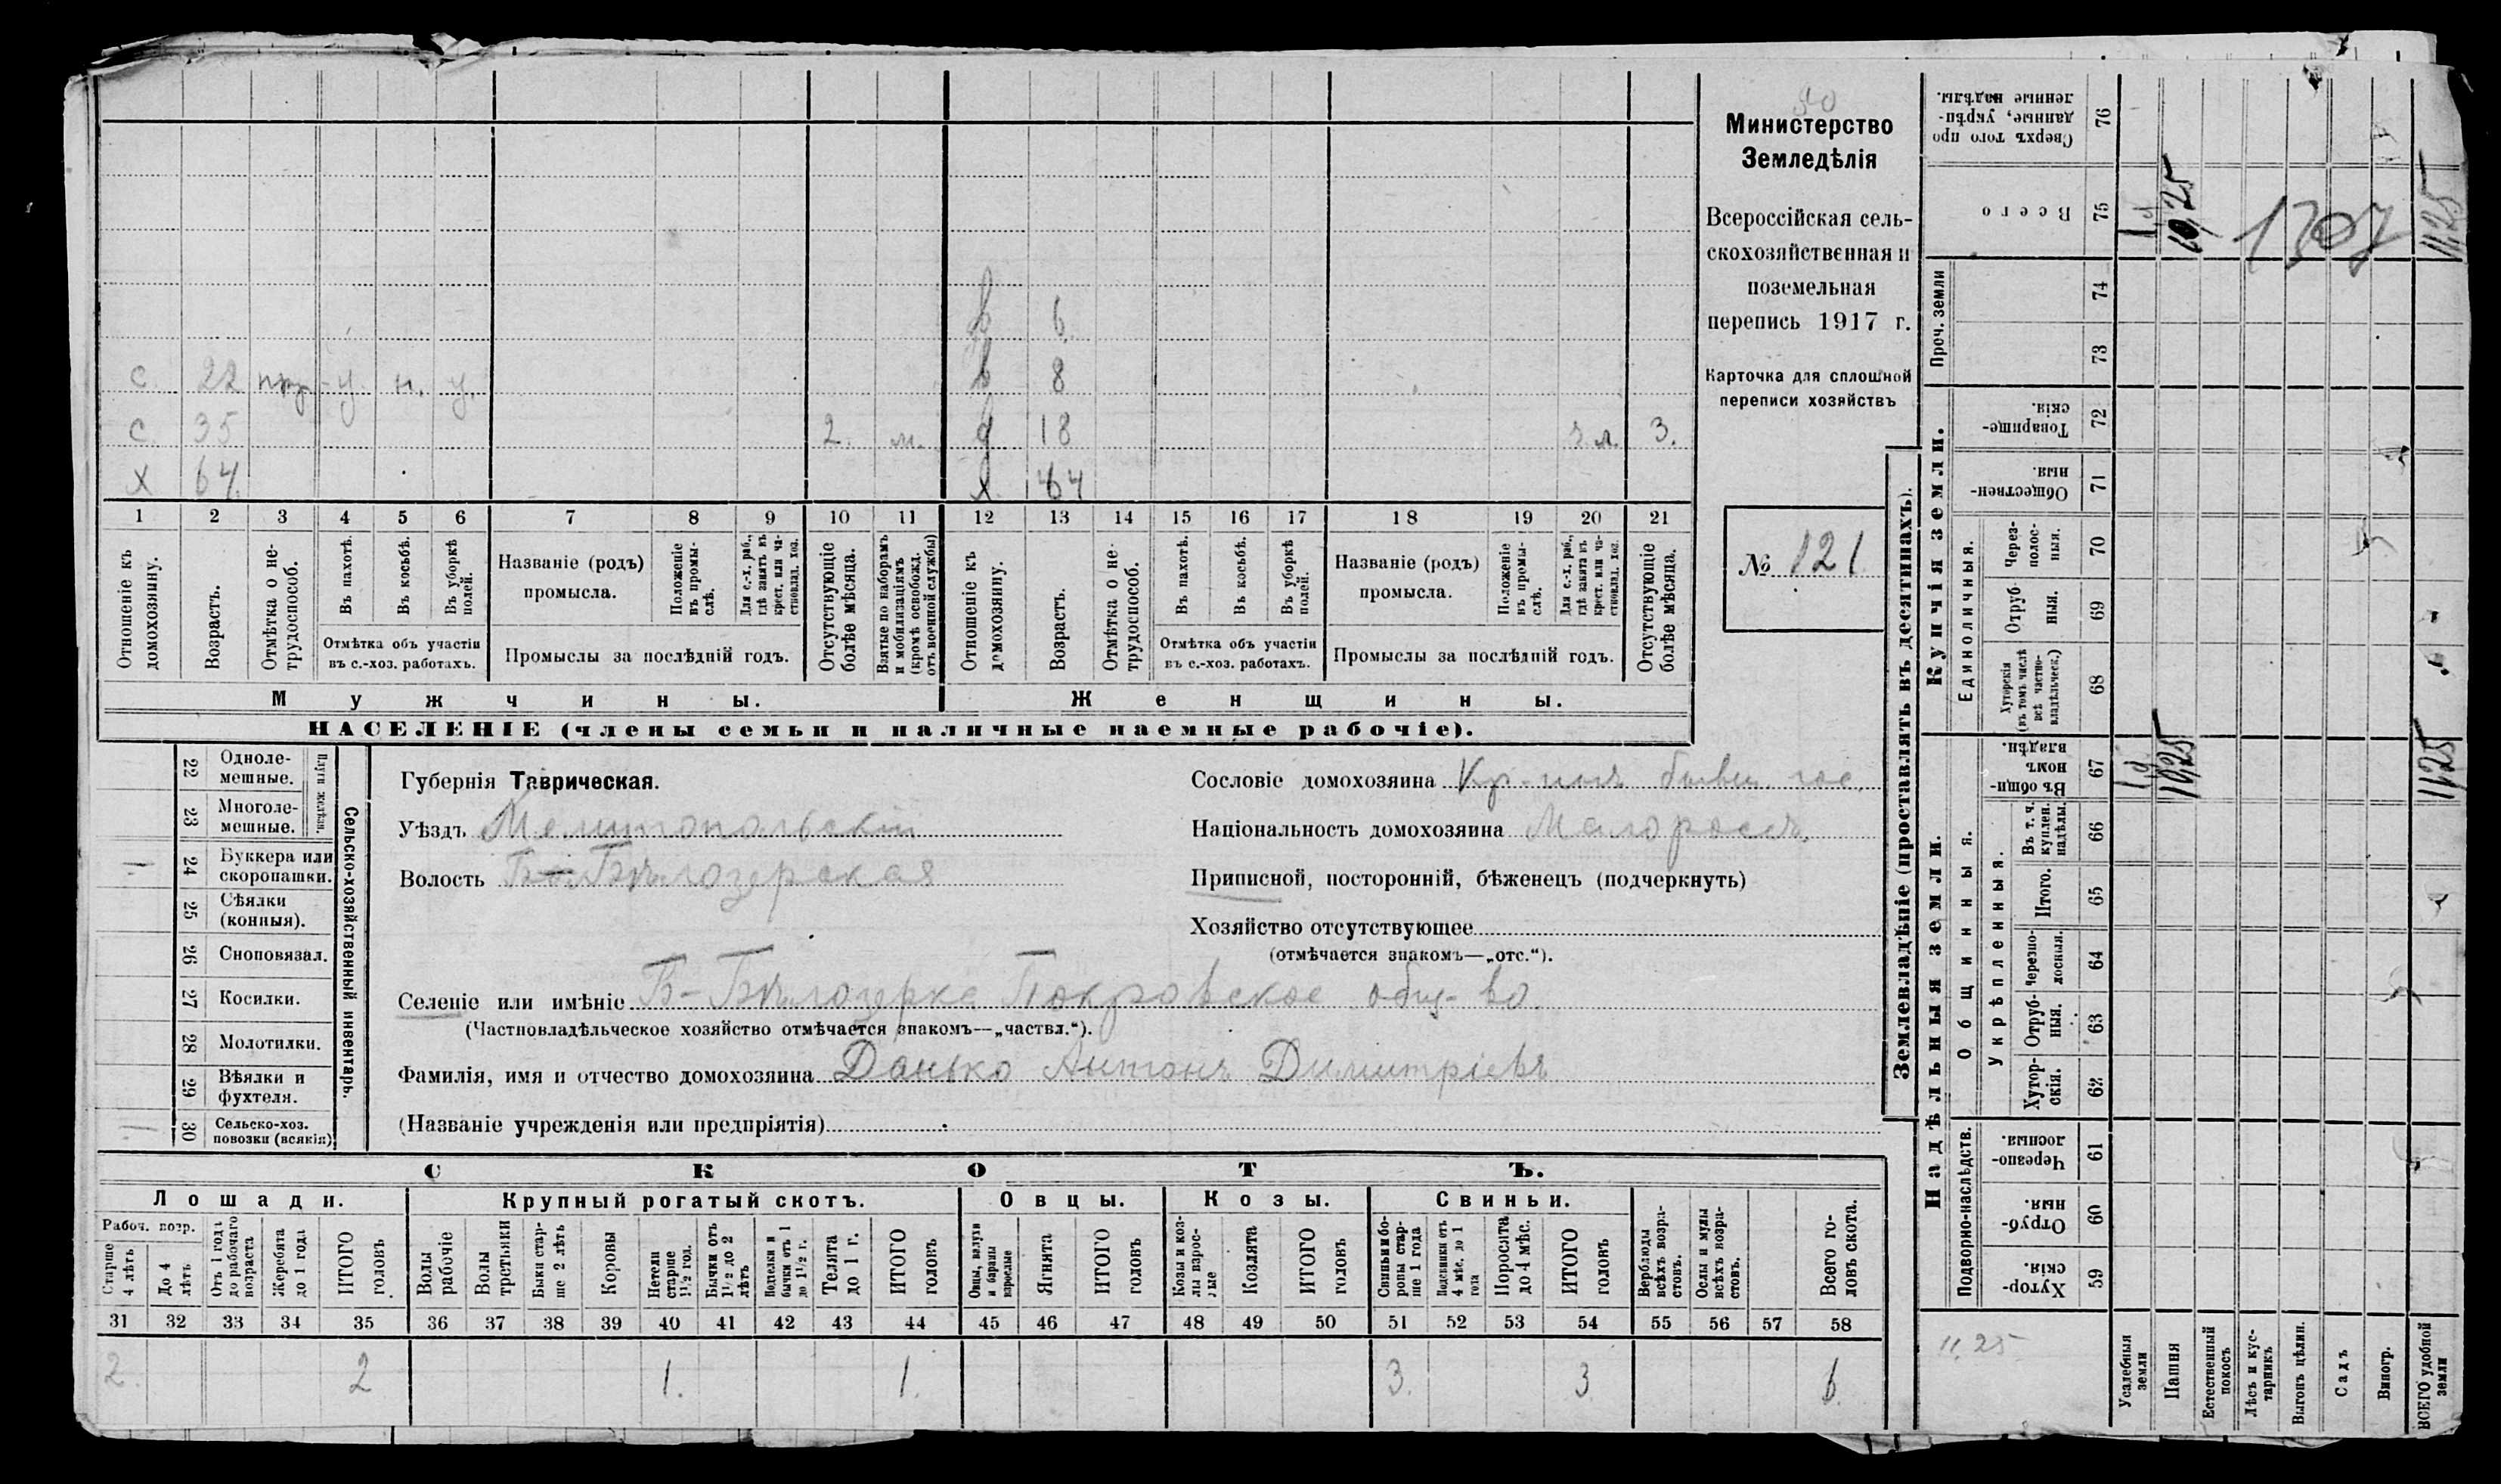 Министерство
Земледѣлія
Всероссійская сель-
скохозяйственная и
поземельная
перепись 1917 г.
Карточка для сплошной
переписи хозяйствъ
№ 121
6
с. 22 у н. у. 8
с. 35 2. м. д 18 3.
х 64 х 64
1 2 3 4 5 6 7 8 9 10 11 12 13 14 15 16 17 18 19 20 21
Отношеніе къ домохозяину.
Возрастъ.
Отмѣтка о не-трудоспособ.
Въ пахотѣ.
Въ косьбѣ.
Въ уборкѣ полей.
Отмѣтка объ участіи
въ с.-хоз. работахъ.
Названіе (родъ)
промысла.
Положеніе въ промы-слѣ.
Для с.-х. раб., гдѣ занятъ въ крест. или ча-стновлад. хоз.
Промыслы за послѣдній годъ.
Отсутствующіе болѣе мѣсяца.
Взятые по наборамъ и мобилизаціямъ (кромѣ освобожд. отъ военной службы)
Отношеніе къ домохозяину.
Возрастъ.
Отмѣтка о не-трудоспособ.
Въ пахотѣ.
Въ косьбѣ.
Въ уборкѣ полей.
Отмѣтка объ участіи
въ с.-хоз. работахъ.
Названіе (родъ)
промысла.
Положеніе въ промы-слѣ.
Для с.-х. раб., гдѣ занята въ крест. или ча-стновлад. хоз.
Промыслы за послѣдній годъ.
Отсутствующіе болѣе мѣсяца.
Мужчины. Женщины.
НАСЕЛЕНІЕ (члены семьи и наличные наемные рабочіе).
Сельско-хозяйственный инвентарь.
Плуги желѣзн.
22 Одноле-мешные.
23 Многоле-мешные.
24 Буккера или скоропашки.
25 Сѣялки (конныя).
26 Сноповязал.
27 Косилки.
28 Молотилки.
29 Вѣялки и фухтеля.
30 Сельско-хоз. повозки (всякія)
Губернія Таврическая.
Уѣздъ Мелитопольскій
Волость Б.-Бѣлозерская
Сословіе домохозяина Кр-нинъ бывш. гос.
Національность домохозяина Малороссъ.
Приписной, посторонній, бѣженецъ (подчеркнуть)
Хозяйство отсутствующее
(отмѣчается знакомъ—„отс.“).
Селеніе или имѣніе Б-Бѣлозерка Покровское общ-во.
(Частновладѣльческое хозяйство отмѣчается знакомъ—„частвл.“).
Фамилія, имя и отчество домохозяина Данько Антонъ Димитріевъ
(Названіе учрежденія или предпріятія)
СКОТЪ.
Лошади. Крупный рогатый скотъ. Овцы. Козы. Свиньи.
Рабоч. возр.
Старше 4 лѣтъ
До 4 лѣтъ
Отъ 1 года до рабочаго возраста
Жеребята до 1 года
ИТОГО головъ
Волы рабочіе
Волы третьяки
Быки стар-ше 2 лѣтъ
Коровы
Нетели старше 1½ год.
Бычки отъ 1½ до 2 лѣтъ
Подтелки и бычки отъ 1 до 1½ г.
Телята до 1 г.
ИТОГО головъ
Овцы, валухи и бараны взрослые
Ягнята
ИТОГО головъ
Козы и коз-лы взрос-лые
Козлята
ИТОГО головъ
Свиньи и бо-ровы стар-ше 1 года
Подсвинки отъ 4 мѣс. до 1 года
Поросята до 4 мѣс.
ИТОГО головъ
Верблюды всѣхъ возра-стовъ.
Ослы и мулы всѣхъ возра-стовъ.
Всего го-ловъ скота.
31 32 33 34 35 36 37 38 39 40 41 42 43 44 45 46 47 48 49 50 51 52 53 54 55 56 57 58
2. 2 1. 1. 3. 3 6.
Землевладѣніе (проставлять въ десятинахъ).
Надѣльныя земли. Купчія земли. Проч. земли
Подворно-наслѣдств.
Общинныя.
Укрѣпленныя.
Единоличныя.
Сверхъ того про
данные, укрѣп-
ленные надѣлы. 76
Всего 75
74
73
Товарище-скія. 72
Обществен-ныя. 71
Через-полос-ныя. 70
Отруб-ныя. 69
Хуторскія (въ томъ числѣ всѣ частно-владѣльческ.) 68
Въ общи-номъ владѣн. 67
Въ т. ч. куплен. надѣлы. 66
Итого. 65
Черезпо-лосныя. 64
Отруб-ныя. 63
Хутор-скія. 62
Черезпо-лосныя. 61
Отруб-ныя. 60
Хутор-скія. 59
10,25 1307 11,25
10,25 11,25
11,25
Усадебныя земли
Пашня
Естественный покосъ
Лѣсъ и кус-тарникъ
Выгонъ цѣлин.
Садъ
Виногр.
ВСЕГО удобной земли